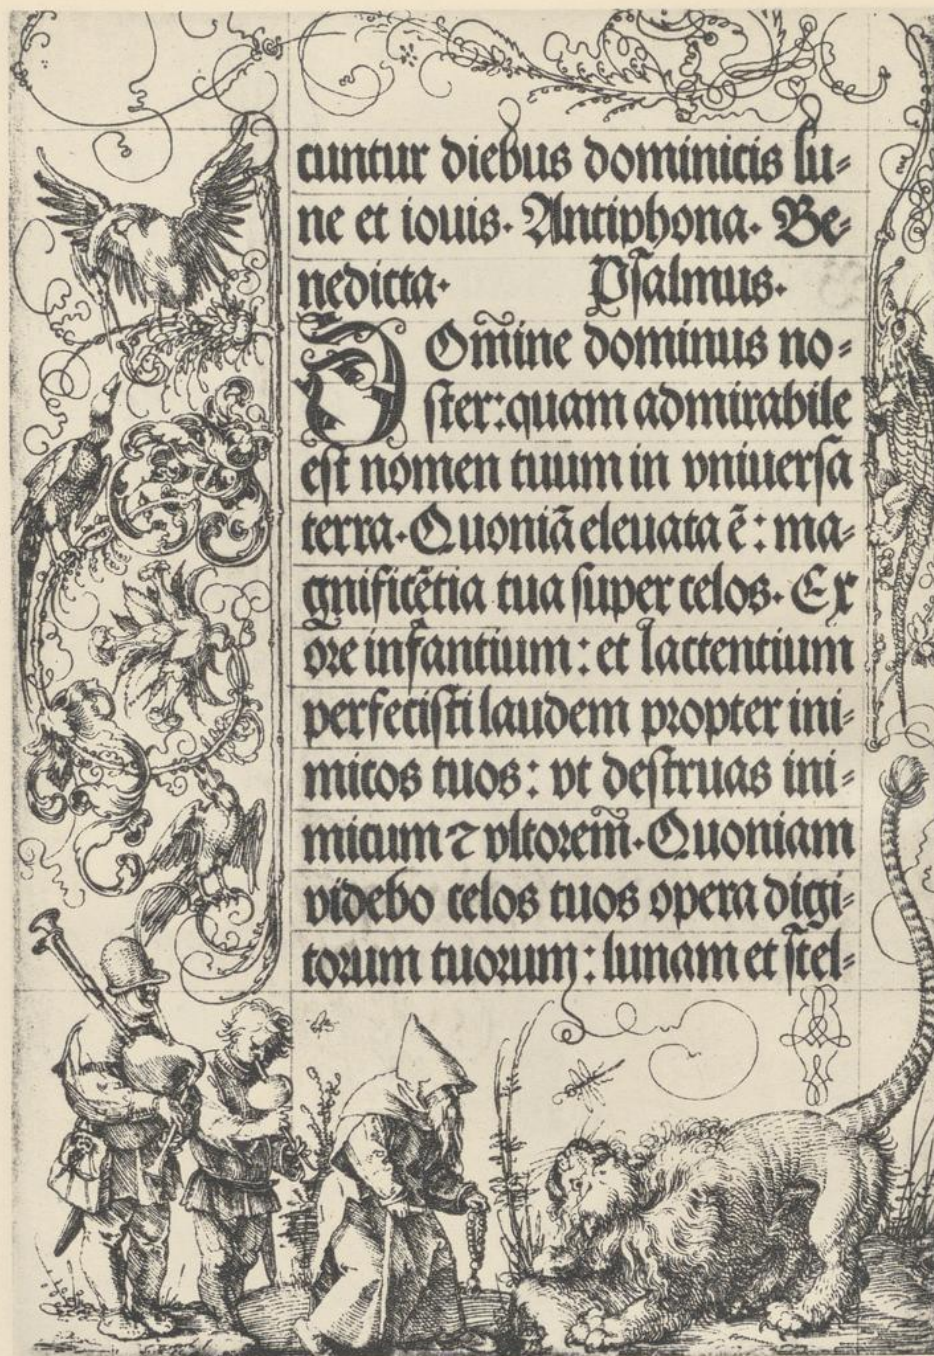 cuntur diebus dominicis lu-
ne et iouis. Antiphona. Be-
nedicta. Psalmus.
DOm̃ine dominus no-
ster: quam admirabile
est nomen tuum in vniuersa
terra. Quoniã eleuata ẽ: ma-
gnificẽtia tua super celos. Ex
ore infantium: et lactentium
perfecisti laudem propter ini-
micos tuos: vt destruas ini-
micum ⁊ vltorem̃. Quoniam
videbo celos tuos opera digi-
torum tuorum: lunam et stel-